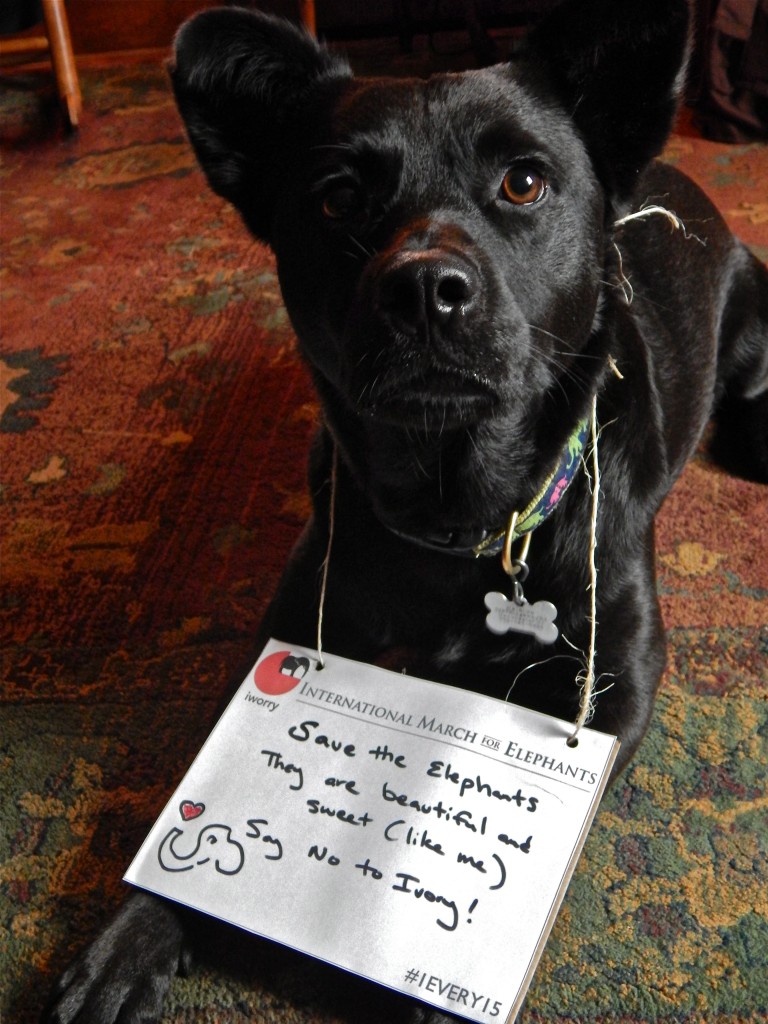 iworry
INTERNATIONAL MARCH FOR ELEPHANTS
Save the Elephants
They are beautiful and
sweet (like me)
Say No to Ivory!
#1EVERY15